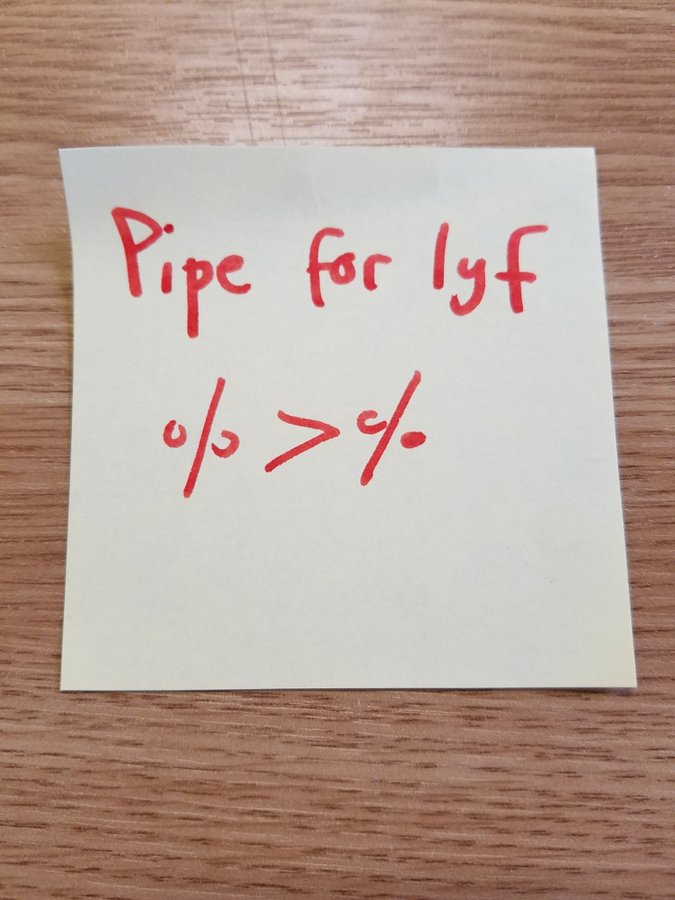 Pipe for lyf
%>%